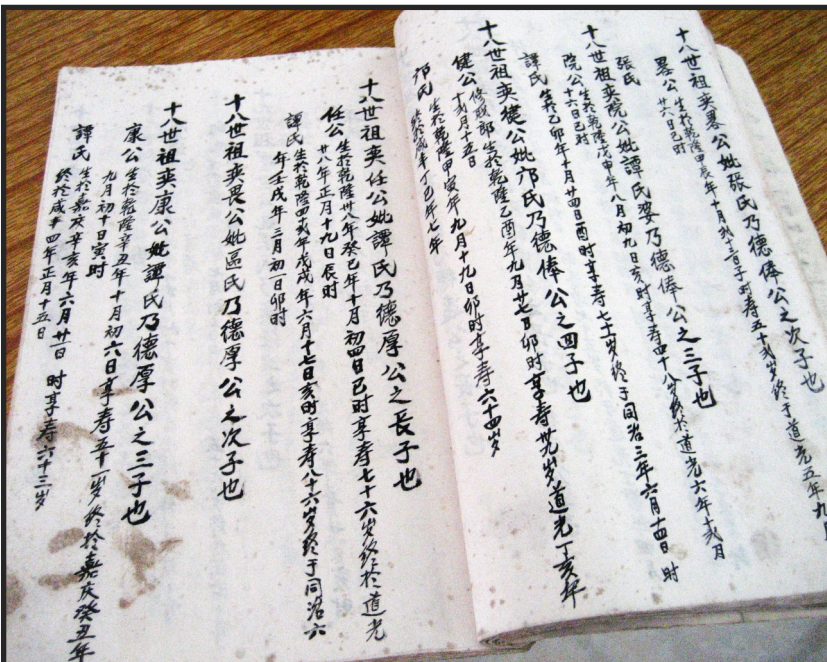 十八世祖奕畧公妣張氏乃德俸公之次子也
畧公生於乾隆甲辰年十月弍十三日子时寿五十弍岁终于道光五年九月
廿六日巳时
張氏
十八世祖奕院公妣譚氏娶乃德俸公之三子也
院公生於乾隆戊申年八月初九日亥时享寿四十八岁终於道光六年十弍月
十六日巳时
譚氏生於乙卯年十月廿四日酉时享寿七十岁终于同治三年六月十四日 时
十八世祖奕健公妣邝氏乃德俸公之四子也
健公修职郎生於乾隆乙酉年九月廿七日卯时享寿卅九岁道光丁亥年
十弍月十五日
邝氏生於乾隆甲寅年九月十九日卯时享寿六十四岁
终於咸丰丁巳年七年
十八世祖奕任公妣譚氏乃德厚公之長子也
任公生於乾隆卅八年癸巳年十月初四日巳时享寿七十六岁终於道光
廿八年正月十九日辰时
譚氏生於乾隆四十弍年戊戌年六月十七日亥时享寿八十六岁终于同治六
年壬戌年三月初一日卯时
十八世祖奕畏公妣區氏乃德厚公之次子也
十八世祖奕康公妣譚氏乃德厚公之三子也
康公生於乾隆辛丑年十月初六日享寿五十一岁终於嘉庆癸丑年
九月初十日寅时
譚氏生於嘉庆辛亥年六月廿一日 时享寿六十三岁
终於咸丰四年正月十五日